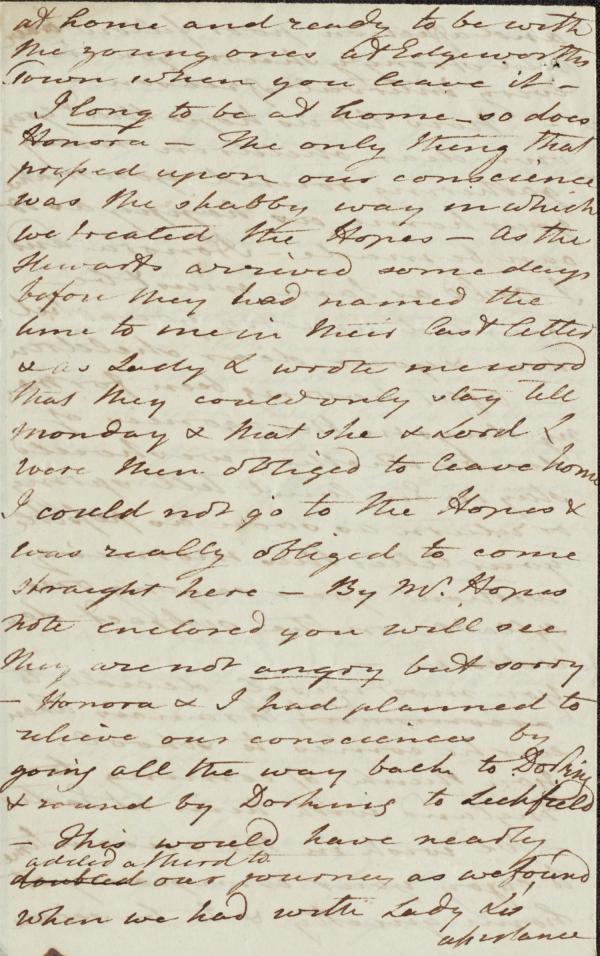 at home and ready to be with
the young ones at Edgeworths
Town when you leave it -
I long to be at home - so does
Honora - The only thing that
pressed upon our conscience
was the shabby way in which
we treated the Hopes - As the
Stewarts arrived some days
before they had named the
time to me in their last letter
& as Lady L wrote me word
that they could only stay till
Monday & that she & Lord L
were then obliged to leave home
I could not go to the Hopes &
was really obliged to come
straight here - By Mr. Hopes
note enclosed you will see
they are not angry but sorry
- Honora & I had planned to
relieve our consciences by
going all the way back to Dorking
& round by Dorking to Lichfield
- This would have nearly
added a third to
doubled our journey as we found
when we had with Lady L's
assistance